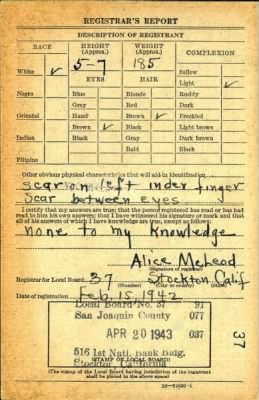 REGISTRAR'S REPORT
DESCRIPTION OF REGISTRANT
RACE HEIGHT (Approx.) WEIGHT (Approx.) COMPLEXION
5-7 185
White ✓ EYES HAIR Sallow
Light ✓
Negro Blue Blonde Ruddy
Gray Red Dark
Oriental Hazel Brown ✓ Freckled
Brown ✓ Black Light brown
Indian Black Gray Dark brown
Bald Black
Filipino
Other obvious physical characteristics that will aid in identification
scar on left index finger
scar between eyes
I certify that my answers are true; that the person registered has read or has had
read to him his own answers; that I have witnessed his signature or mark and that
all of his answers of which I have knowledge are true, except as follows:
none to my knowledge
Alice McLead
(Signature of registrar)
Registrar for Local Board 37 Stockton Calif
(Number) (City or county) (State)
Date of registration Feb. 15, 1942
Local Board No. 37 91
San Joaquin County 077
APR 20 1943 037
516 1st Natl. Bank Bldg.
Stockton, California
(STAMP OF LOCAL BOARD)
(The stamp of the Local Board having jurisdiction of the registrant
shall be placed in the above space)
37